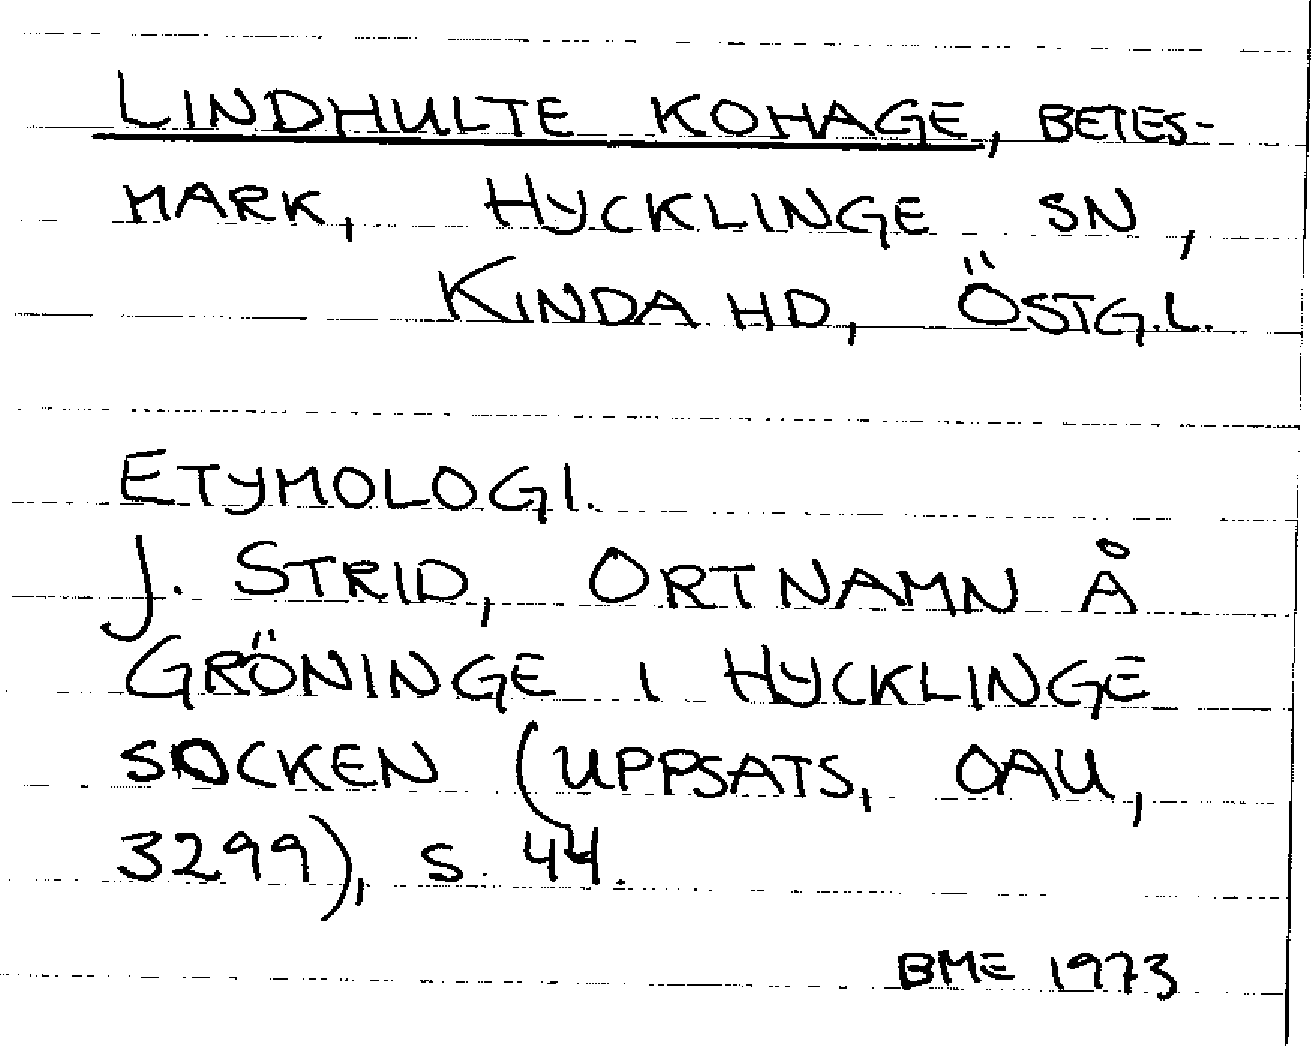 LINDHULTE KOHAGE, BETES-
MARK, HYCKLINGE SN,
KINDA HD, ÖSTG.L.
ETYMOLOGI.
J. STRID, ORTNAMN Å
GRÖNINGE I HYCKLINGE
SOCKEN (UPPSATS, OAU,
3299), S. 44.
BME 1973